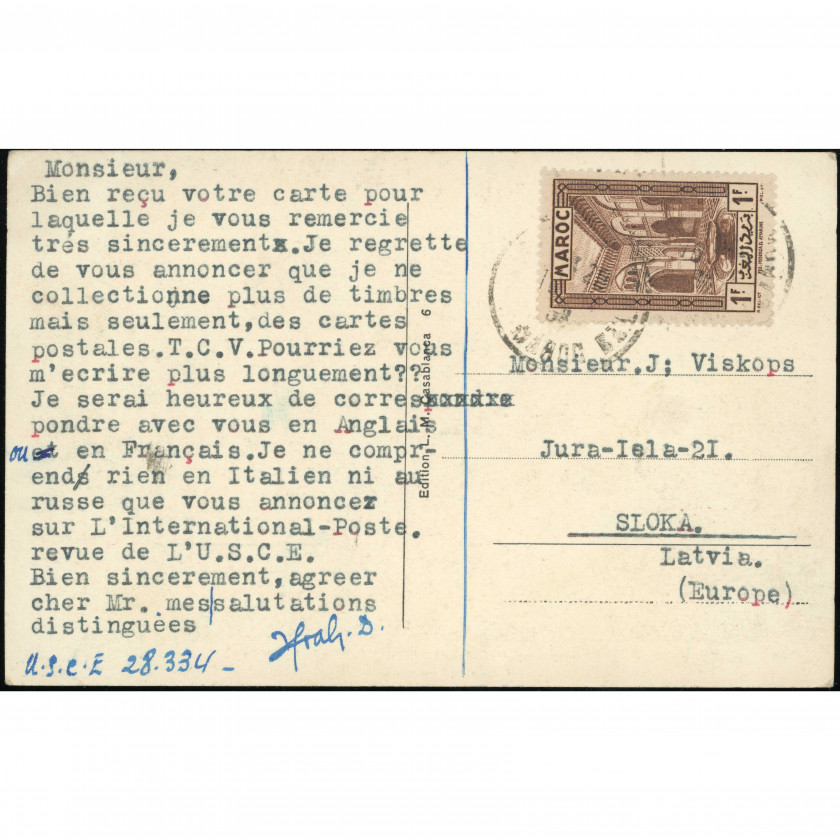 Monsieur,
Bien reçu votre carte pour
laquelle je vous remercie
trés sincerement.Je regrette
de vous annoncer que je ne
collectionne plus de timbres
mais seulement,des cartes
postales.T.C.V.Pourriez vous
m'ecrire plus longuement??
Je serai heureux de corres
pondre avec vous en Anglais
ou en Français.Je ne compr
end rien en Italien ni au
russe que vous annoncez
sur L'International-Poste.
revue de L'U.S.C.E.
Bien sincerement,agreer
cher Mr. mes salutations
distinguées
U.S.C.E 28.334-
Edition L. M. Casablanca 6
MAROC
1F.
1F.
MAROC
Monsieur.J; Viskops
Jura-Iela-2I.
SLOKA.
Latvia.
(Europe)